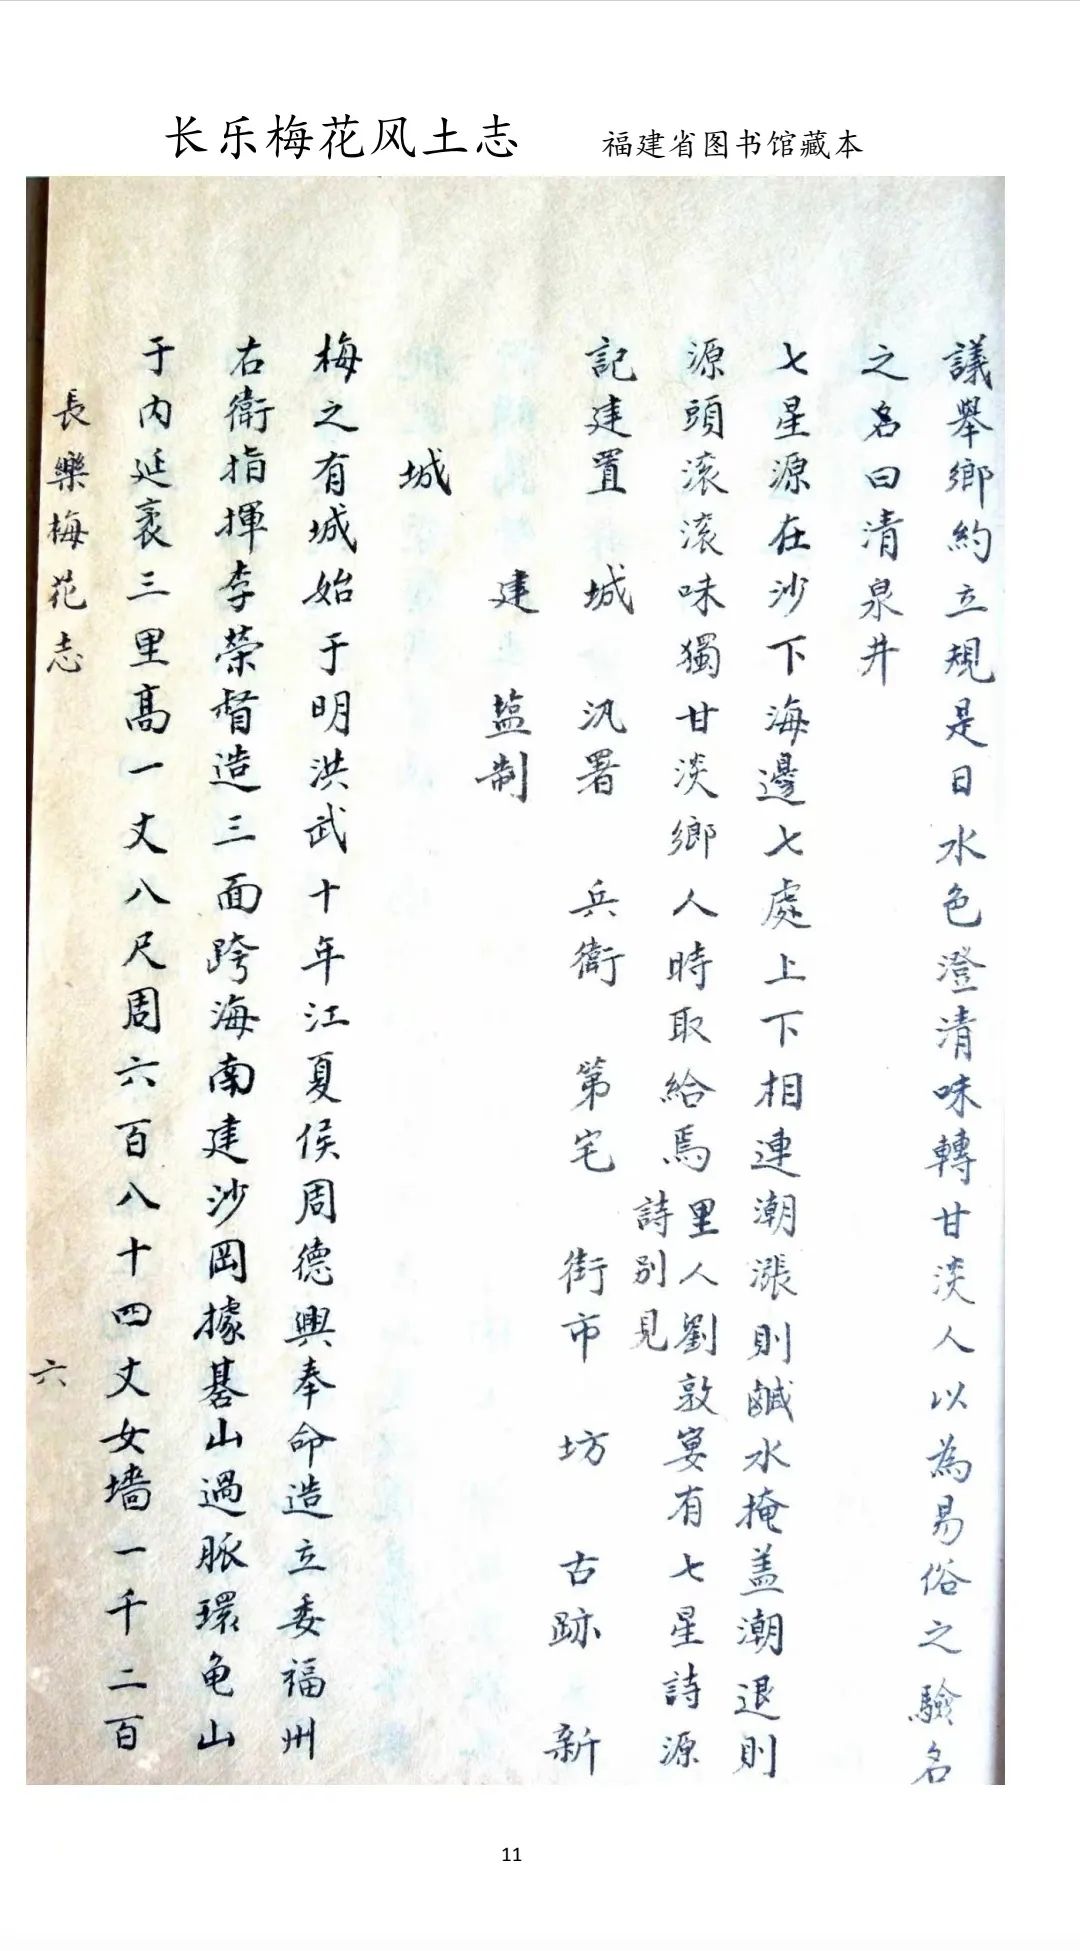 长乐梅花风土志 福建省图书馆藏本
議舉鄉約立規是日水色澄清味轉甘淡人以為易俗之驗名
之名曰清泉井
七星源在沙下海邊七處上下相連潮漲則鹹水掩盖潮退則
源頭滚滚味獨甘淡鄉人時取給焉里人劉敦宴有七星詩源
詩别見
記建置 城 汛署 兵衛 第宅 街市 坊 古跡 新
建 盐制
城
梅之有城始于明洪武十年江夏侯周德興奉命造立委福州
右衛指揮李榮督造三面跨海南建沙岡據碁山過脈環龟山
于内延袤三里高一丈八尺周六百八十四丈女墻一千二百
長樂梅花志 六
11